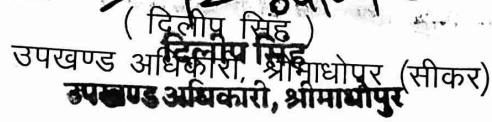 ( दिलीप सिंह )
दिलीप सिंह
उपखण्ड अधिकारी, श्रीमाधोपुर (सीकर)
उपखण्ड अधिकारी, श्रीमाधोपुर